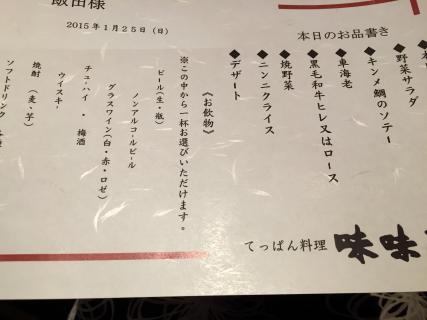 飯田様
2015年1月25日（日）
本日のお品書き
◆野菜サラダ
◆キンメ鯛のソテー
◆車海老
◆黒毛和牛ヒレ又はロース
◆焼野菜
◆ニンニクライス
◆デザート
《お飲物》
※この中から一杯お選びいただけます。
ビール(生・瓶)
ノンアルコールビール
グラスワイン(白・赤・ロゼ)
チューハイ・梅酒
ウイスキー
焼酎（麦、芋）
ソフトドリンク
てっぱん料理
味味